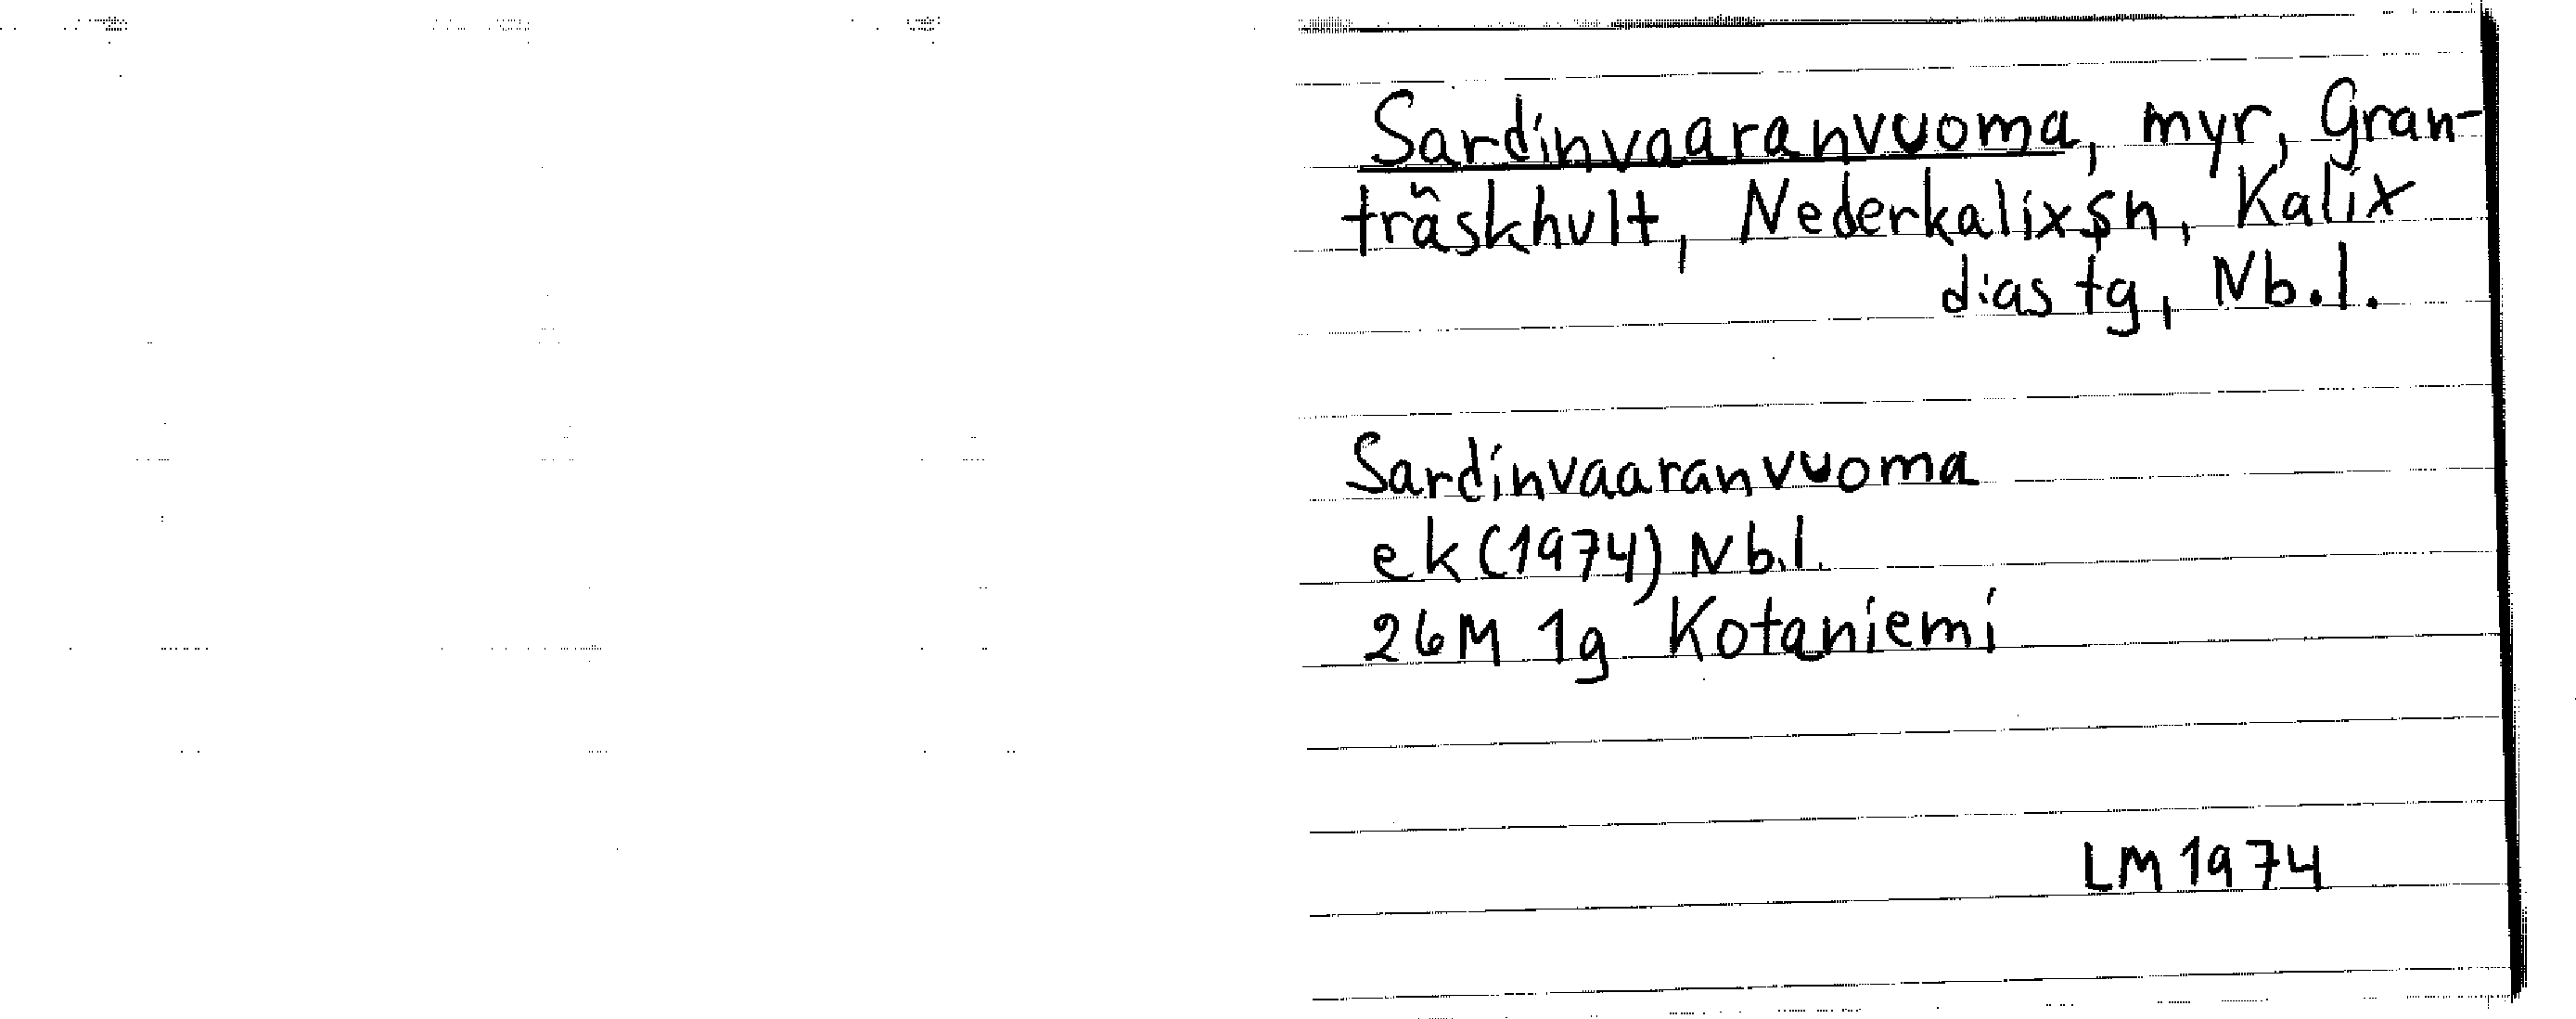 Sardinvaaranvuoma, myr, Gran-
träskhult, Nederkalix sn, Kalix
dias tg, Nb.l.
Sardinvaaranvuoma
ek (1974) Nb.l.
26M 1g Kotaniemi
LM 1974